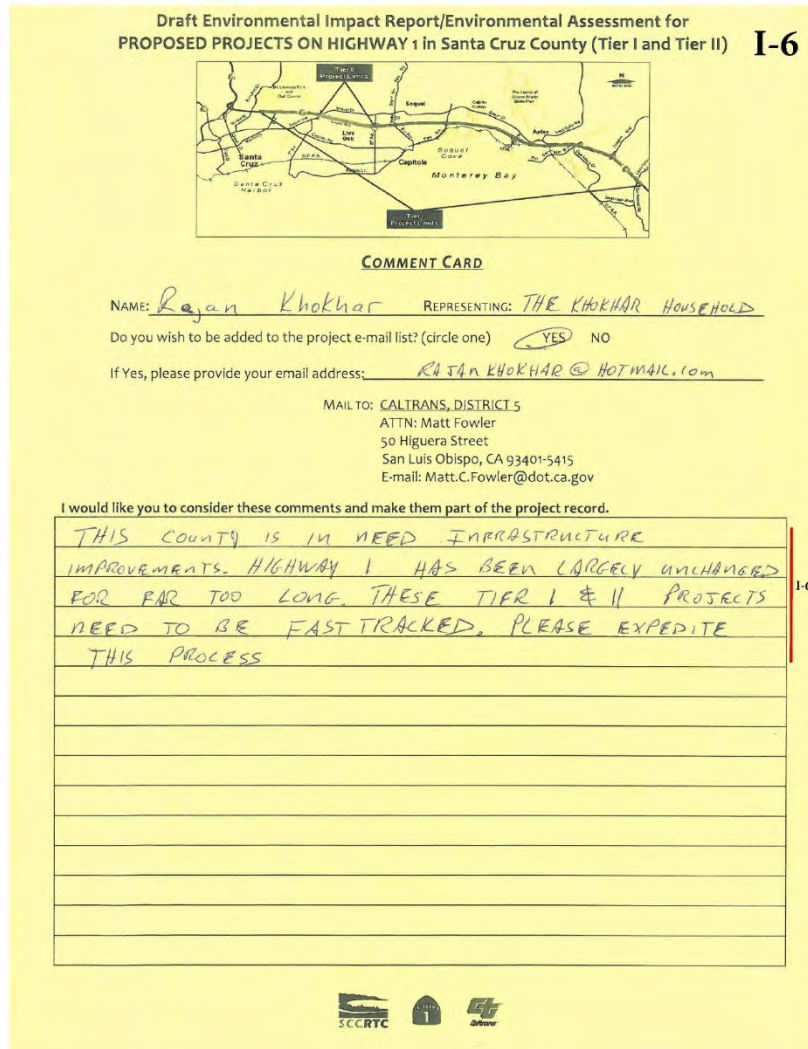 Draft Environmental Impact Report/Environmental Assessment for
PROPOSED PROJECTS ON HIGHWAY 1 in Santa Cruz County (Tier I and Tier II)
I-6
Tier II
Project Limits
N
Soquel
Live
Oak
Aptos
Santa
Cruz
Capitola
Soquel
Cove
Monterey Bay
Santa Cruz
Harbor
Tier I
Project Limits
COMMENT CARD
NAME: Rajan Khokhar REPRESENTING: THE KHOKHAR HOUSEHOLD
Do you wish to be added to the project e-mail list? (circle one) YES NO
If Yes, please provide your email address: RAJAN KHOKHAR @ HOTMAIL.com
MAIL TO: CALTRANS, DISTRICT 5
ATTN: Matt Fowler
50 Higuera Street
San Luis Obispo, CA 93401-5415
E-mail: Matt.C.Fowler@dot.ca.gov
I would like you to consider these comments and make them part of the project record.
THIS COUNTY IS IN NEED INFRASTRUCTURE
IMPROVEMENTS. HIGHWAY 1 HAS BEEN LARGELY UNCHANGED
FOR FAR TOO LONG. THESE TIER I & II PROJECTS
NEED TO BE FAST TRACKED. PLEASE EXPEDITE
THIS PROCESS
SCCRTC
1
Caltrans